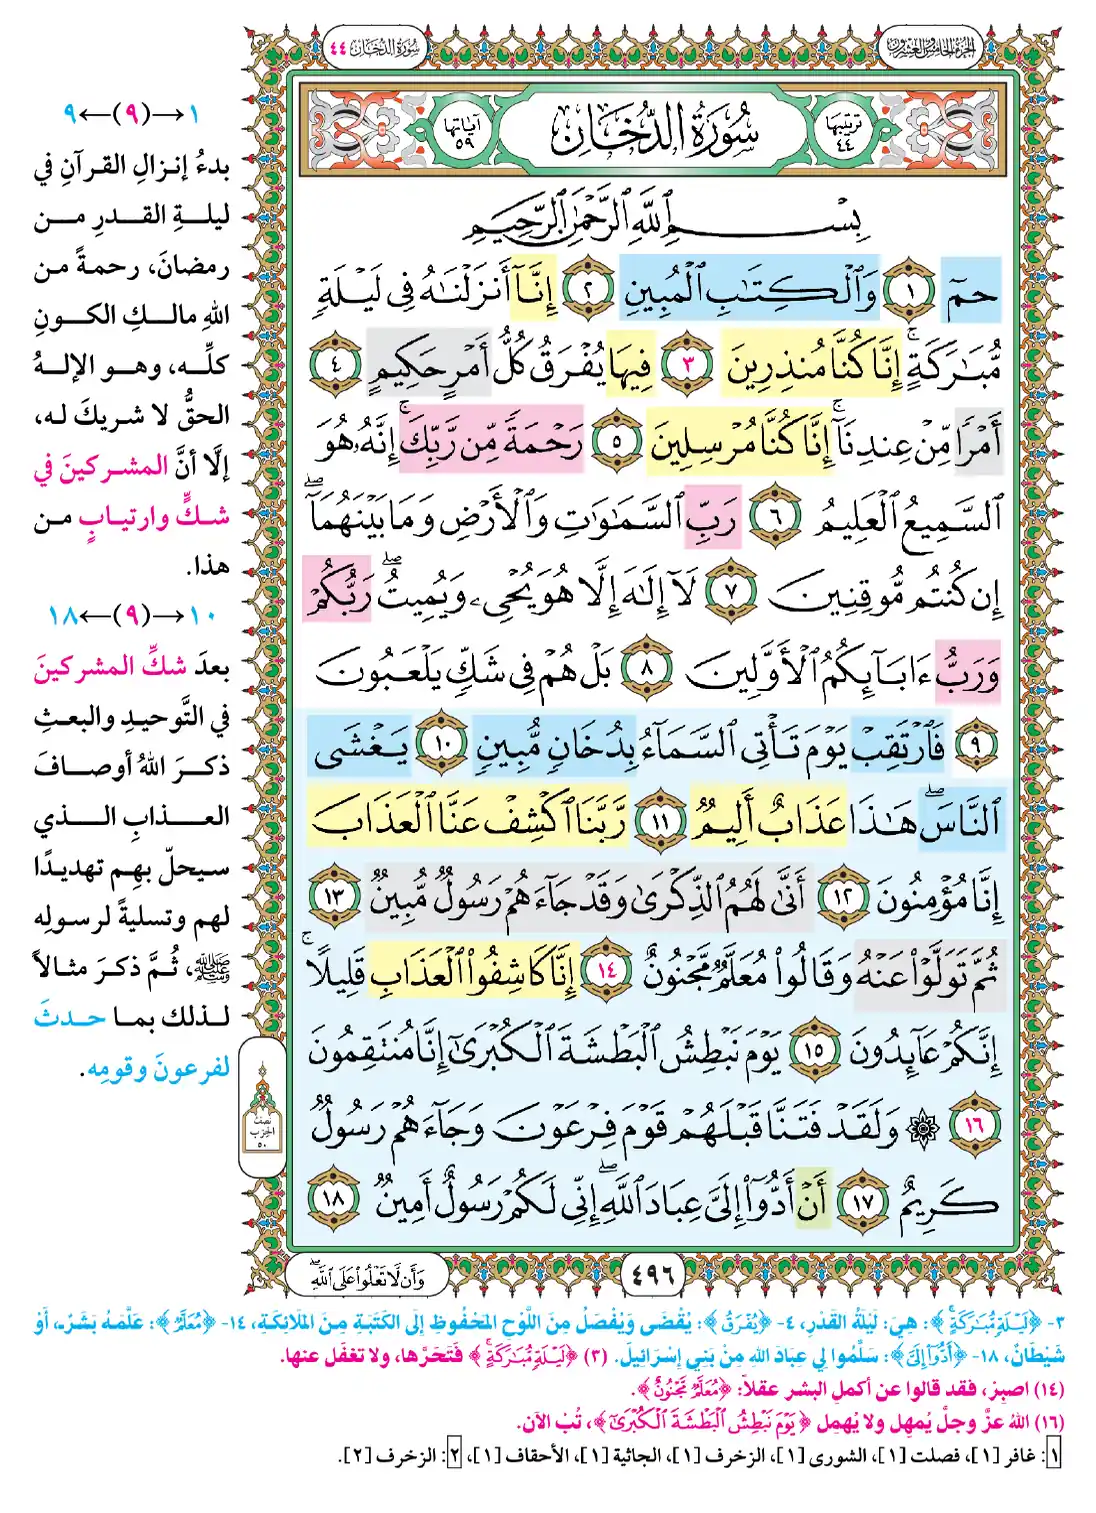 الجزء الخامس والعشرون
سورة الدخان ٤٤
ترتيبها ٤٤
سُورَةُ الدُّخَان
آياتها ٥٩
بِسۡمِ ٱللَّهِ ٱلرَّحۡمَٰنِ ٱلرَّحِيمِ
حمٓ ١ وَٱلۡكِتَٰبِ ٱلۡمُبِينِ ٢ إِنَّآ أَنزَلۡنَٰهُ فِي لَيۡلَةٖ
مُّبَٰرَكَةٍۚ إِنَّا كُنَّا مُنذِرِينَ ٣ فِيهَا يُفۡرَقُ كُلُّ أَمۡرٍ حَكِيمٍ ٤
أَمۡرٗا مِّنۡ عِندِنَآۚ إِنَّا كُنَّا مُرۡسِلِينَ ٥ رَحۡمَةٗ مِّن رَّبِّكَۚ إِنَّهُۥ هُوَ
ٱلسَّمِيعُ ٱلۡعَلِيمُ ٦ رَبِّ ٱلسَّمَٰوَٰتِ وَٱلۡأَرۡضِ وَمَا بَيۡنَهُمَآۖ
إِن كُنتُم مُّوقِنِينَ ٧ لَآ إِلَٰهَ إِلَّا هُوَ يُحۡيِۦ وَيُمِيتُۖ رَبُّكُمۡ
وَرَبُّ ءَابَآئِكُمُ ٱلۡأَوَّلِينَ ٨ بَلۡ هُمۡ فِي شَكّٖ يَلۡعَبُونَ
٩ فَٱرۡتَقِبۡ يَوۡمَ تَأۡتِي ٱلسَّمَآءُ بِدُخَانٖ مُّبِينٖ ١٠ يَغۡشَى
ٱلنَّاسَۖ هَٰذَا عَذَابٌ أَلِيمٞ ١١ رَّبَّنَا ٱكۡشِفۡ عَنَّا ٱلۡعَذَابَ
إِنَّا مُؤۡمِنُونَ ١٢ أَنَّىٰ لَهُمُ ٱلذِّكۡرَىٰ وَقَدۡ جَآءَهُمۡ رَسُولٞ مُّبِينٞ ١٣
ثُمَّ تَوَلَّوۡاْ عَنۡهُ وَقَالُواْ مُعَلَّمٞ مَّجۡنُونٌ ١٤ إِنَّا كَاشِفُواْ ٱلۡعَذَابِ قَلِيلًاۚ
إِنَّكُمۡ عَآئِدُونَ ١٥ يَوۡمَ نَبۡطِشُ ٱلۡبَطۡشَةَ ٱلۡكُبۡرَىٰٓ إِنَّا مُنتَقِمُونَ
١٦ ۞ وَلَقَدۡ فَتَنَّا قَبۡلَهُمۡ قَوۡمَ فِرۡعَوۡنَ وَجَآءَهُمۡ رَسُولٞ
كَرِيمٌ ١٧ أَنۡ أَدُّوٓاْ إِلَيَّ عِبَادَ ٱللَّهِۖ إِنِّي لَكُمۡ رَسُولٌ أَمِينٞ ١٨
٤٩٦
وَأَن لَّا تَعۡلُواْ عَلَى ٱللَّهِۖ
نصف
الحزب
٥٠
١→(٩)←٩
بدءُ إنزالِ القرآنِ في
ليلةِ القدرِ من
رمضانَ، رحمةً من
اللهِ مالكِ الكونِ
كلِّه، وهو الإلهُ
الحقُّ لا شريكَ له،
إلَّا أنَّ المشركينَ في
شكٍّ وارتيابٍ من
هذا.
١٠→(٩)←١٨
بعدَ شكِّ المشركينَ
في التَّوحيدِ والبعثِ
ذكرَ اللهُ أوصافَ
العذابِ الذي
سيحلّ بهِم تهديدًا
لهم وتسليةً لرسولِه
ﷺ، ثُمَّ ذكرَ مثالاً
لذلك بما حدثَ
لفرعونَ وقومِه.
٣- ﴿لَيۡلَةٖ مُّبَٰرَكَةٍۚ﴾: هِيَ: لَيْلَةُ القَدْرِ، ٤- ﴿يُفۡرَقُ﴾: يُقْضَى وَيُفْصَلُ مِنَ اللَّوْحِ المَحْفُوظِ إِلَى الكَتَبَةِ مِنَ المَلَائِكَةِ، ١٤- ﴿مُعَلَّمٞ﴾: عَلَّمَهُ بَشَرٌ، أَوْ
شَيْطَانٌ، ١٨- ﴿أَدُّوٓاْ إِلَيَّ﴾: سَلِّمُوا لِي عِبَادَ اللهِ مِنْ بَنِي إِسْرَائِيلَ. (٣) ﴿لَيۡلَةٖ مُّبَٰرَكَةٍۚ﴾ فَتَحَرَّها، ولا تغفَل عنها.
(١٤) اصبِرْ، فقد قالوا عن أكملِ البشر عقلاً: ﴿مُعَلَّمٞ مَّجۡنُونٌ﴾.
(١٦) اللهُ عزَّ وجلَّ يُمهِل ولا يُهمِل ﴿يَوۡمَ نَبۡطِشُ ٱلۡبَطۡشَةَ ٱلۡكُبۡرَىٰٓ﴾، تُبْ الآن.
١: غافر [١]، فصلت [١]، الشورى [١]، الزخرف [١]، الجاثية [١]، الأحقاف [١]، ٢: الزخرف [٢].